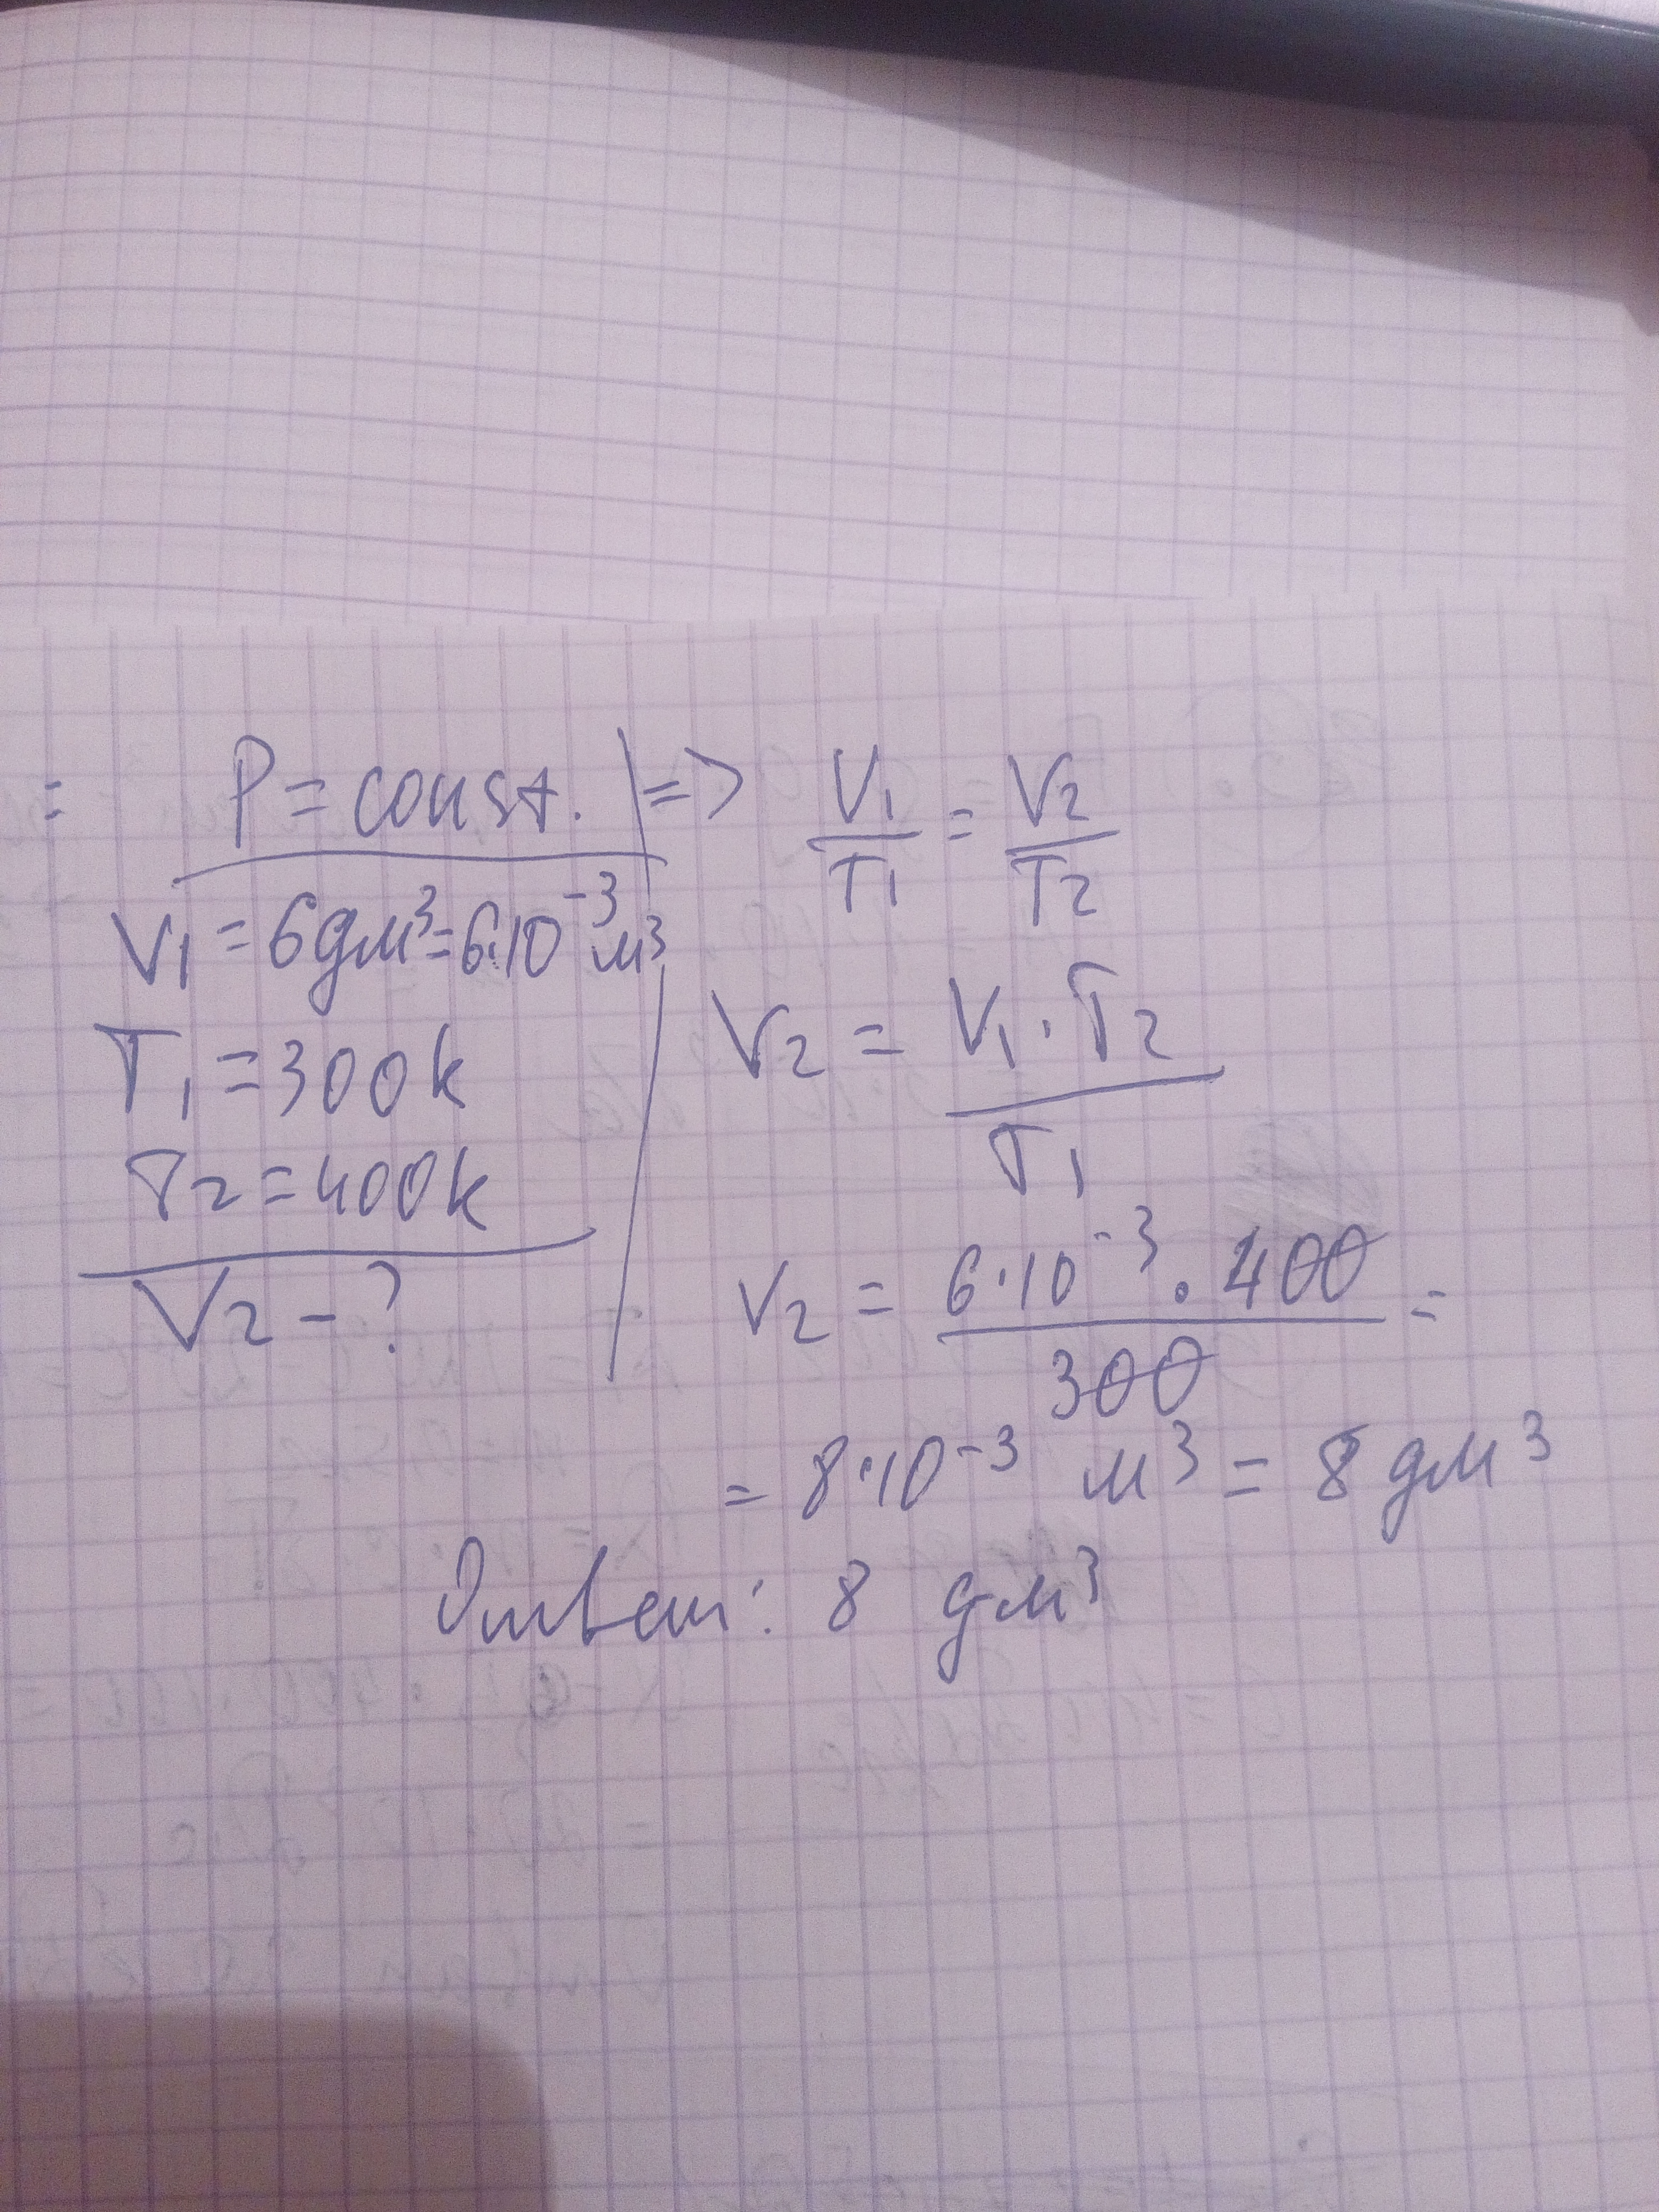 : P = const. => V₁/T₁ = V₂/T₂
V₁ = 6дм³ = 6·10⁻³ м³
T₁ = 300k
T₂ = 400k
V₂ - ?
V₂ = V₁·T₂/T₁
V₂ = 6·10⁻³ · 400/300 =
= 8·10⁻³ м³ = 8 дм³
Ответ: 8 дм³